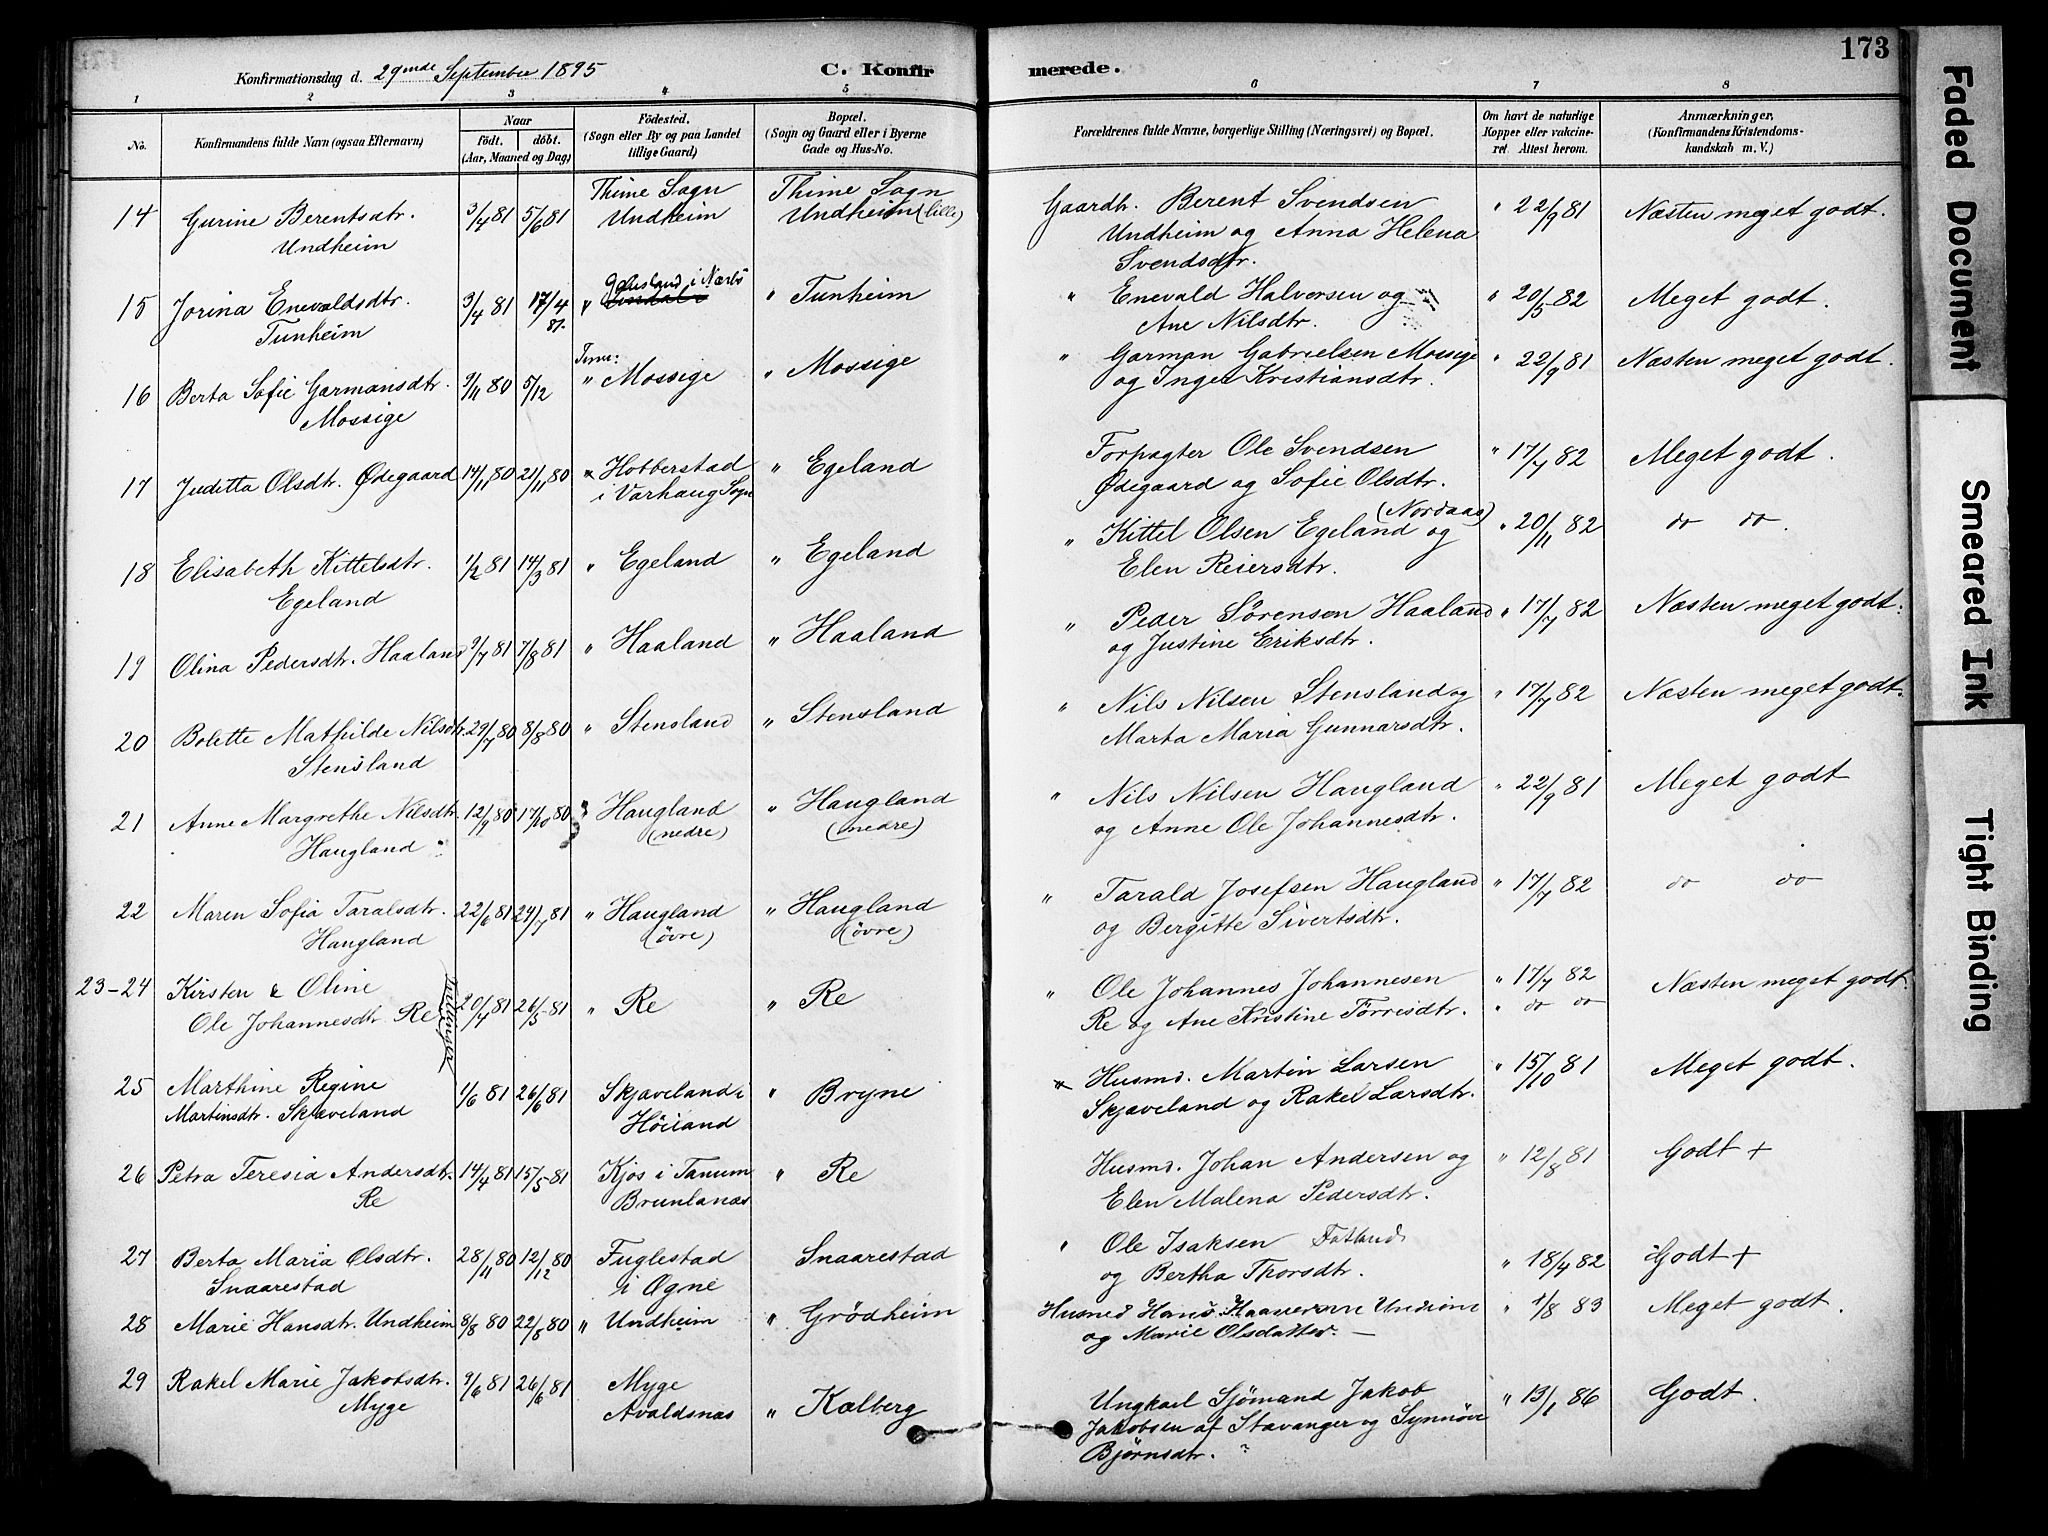 173
Konfirmationsdag d. 29nde September 1895 C. Konfirmerede.
1 2 3 4 5 6 7 8
No. Konfirmandens fulde Navn (ogsaa Efternavn) Naar födt. döbt. (Aar, Maaned og Dag) Födested. (Sogn eller By og paa Landet tillige Gaard) Bopæl. (Sogn og Gaard eller i Byerne Gade og Hus-No. Forældrenes fulde Navne, borgerlige Stilling (Næringsvei) og Bopæl. Om havt de naturlige Kopper eller vakcineret. Attest herom. Anmærkninger, (Konfirmandens Kristendomskundskab m. V.)
14 Gurine Berentsdtr. Undheim 3/4 81 5/6 81 Thime Sogn Undheim Thime Sogn Undheim (lille) Gaardbr. Berent Svendsen Undheim og Anna Helena Svendsdtr. " 22/9 81 Næsten meget godt.
15 Jorina Enevaldsdtr. Tunheim 3/4 81 17/4 81. " i Nærbö " Tunheim " Enevald Halversen og Ane Nilsdtr. " 20/5 82 Meget godt.
16 Berta Sofie Garmansdtr. Mossige 9/11 80 5/12 " Mossige " Mossige " Garman Gabrielsen Mossige og Inger Kristiansdtr. " 22/9 81 Næsten meget godt.
17 Juditta Olsdtr. Ødegaard 14/11 80 21/11 80 Hobberstad i Varhaug Sogn " Egeland Forpagter Ole Svendsen Ødegaard og Sofie Olsdtr. " 17/7 82 Meget godt.
18 Elisabeth Kittelsdtr. Egeland 1/2 81 14/3 81 " Egeland " Egeland " Kittel Olsen Egeland (Nordaas) og Elen Reiersdtr. " 20/11 82 do do.
19 Olina Pedersdtr. Haaland 2/7 81 7/8 81 " Haaland " Haaland " Peder Sörensen Haaland og Justine Eriksdtr. " 17/7 82 Næsten meget godt.
20 Bolette Mathilde Nilsdtr. Stensland 29/7 80 8/8 80 " Stensland " Stensland " Nils Nilsen Stensland og Marta Maria Gunnarsdtr. " 17/7 82 Næsten meget godt.
21 Anne Margrethe Nilsdtr. Haugland 12/9 80 17/10 80 " Haugland (nedre) " Haugland (nedre) " Nils Nilsen Haugland og Anne Ole Johannesdtr. " 22/9 81 Meget godt
22 Maren Sofia Taralsdtr. Haugland 22/6 81 24/7 81 " Haugland (övre) " Haugland (övre) " Tarald Josefsen Haugland og Bergitte Sivertsdtr. " 17/7 82 do do
23-24 Kirsten & Oline Ole Johannesdtr. Re Tvillinger 20/4 81 26/5 81 " Re " Re " Ole Johannes Johannesen Re og Ane Kristine Törrisdtr. " 17/7 82 " do do Næsten meget godt.
25 Marthine Regine Martinsdtr. Skjæveland 1/6 81 26/6 81 Skjæveland i Höiland " Bryne Husmd. Martin Larsen Skjæveland og Rakel Larsdtr. " 15/10 81 Meget godt.
26 Petra Teresia Andersdtr. Re 14/4 81 15/5 81 Kjos i Tanum Brunlanæs " Re Husmd. Johan Andersen og Elen Malena Pedersdtr. " 12/8 81 Godt +
27 Berta Maria Olsdtr. Snaarestad 28/11 80 12/12 80 Fuglestad i Ogne Snaarestad " Ole Isaksen Fatland og Bertha Thorsdtr. " 18/4 82 Godt +
28 Marie Hansdtr. Undheim 8/8 80 22/8 80 " Undheim " Grödheim Husmd Hans Undheim og Marie Olsdatter. — " 1/8 83 Meget godt.
29 Rakel Marie Jakobsdtr. Myge 9/6 81 26/6 81 Myge Avaldsnæs " Kalberg Ungkarl Sjömand Jakob Jakobsen af Stavanger og Synnöve Björnsdtr. " 13/1 86 Godt.
Faded Document
Smeared Ink
Tight Binding